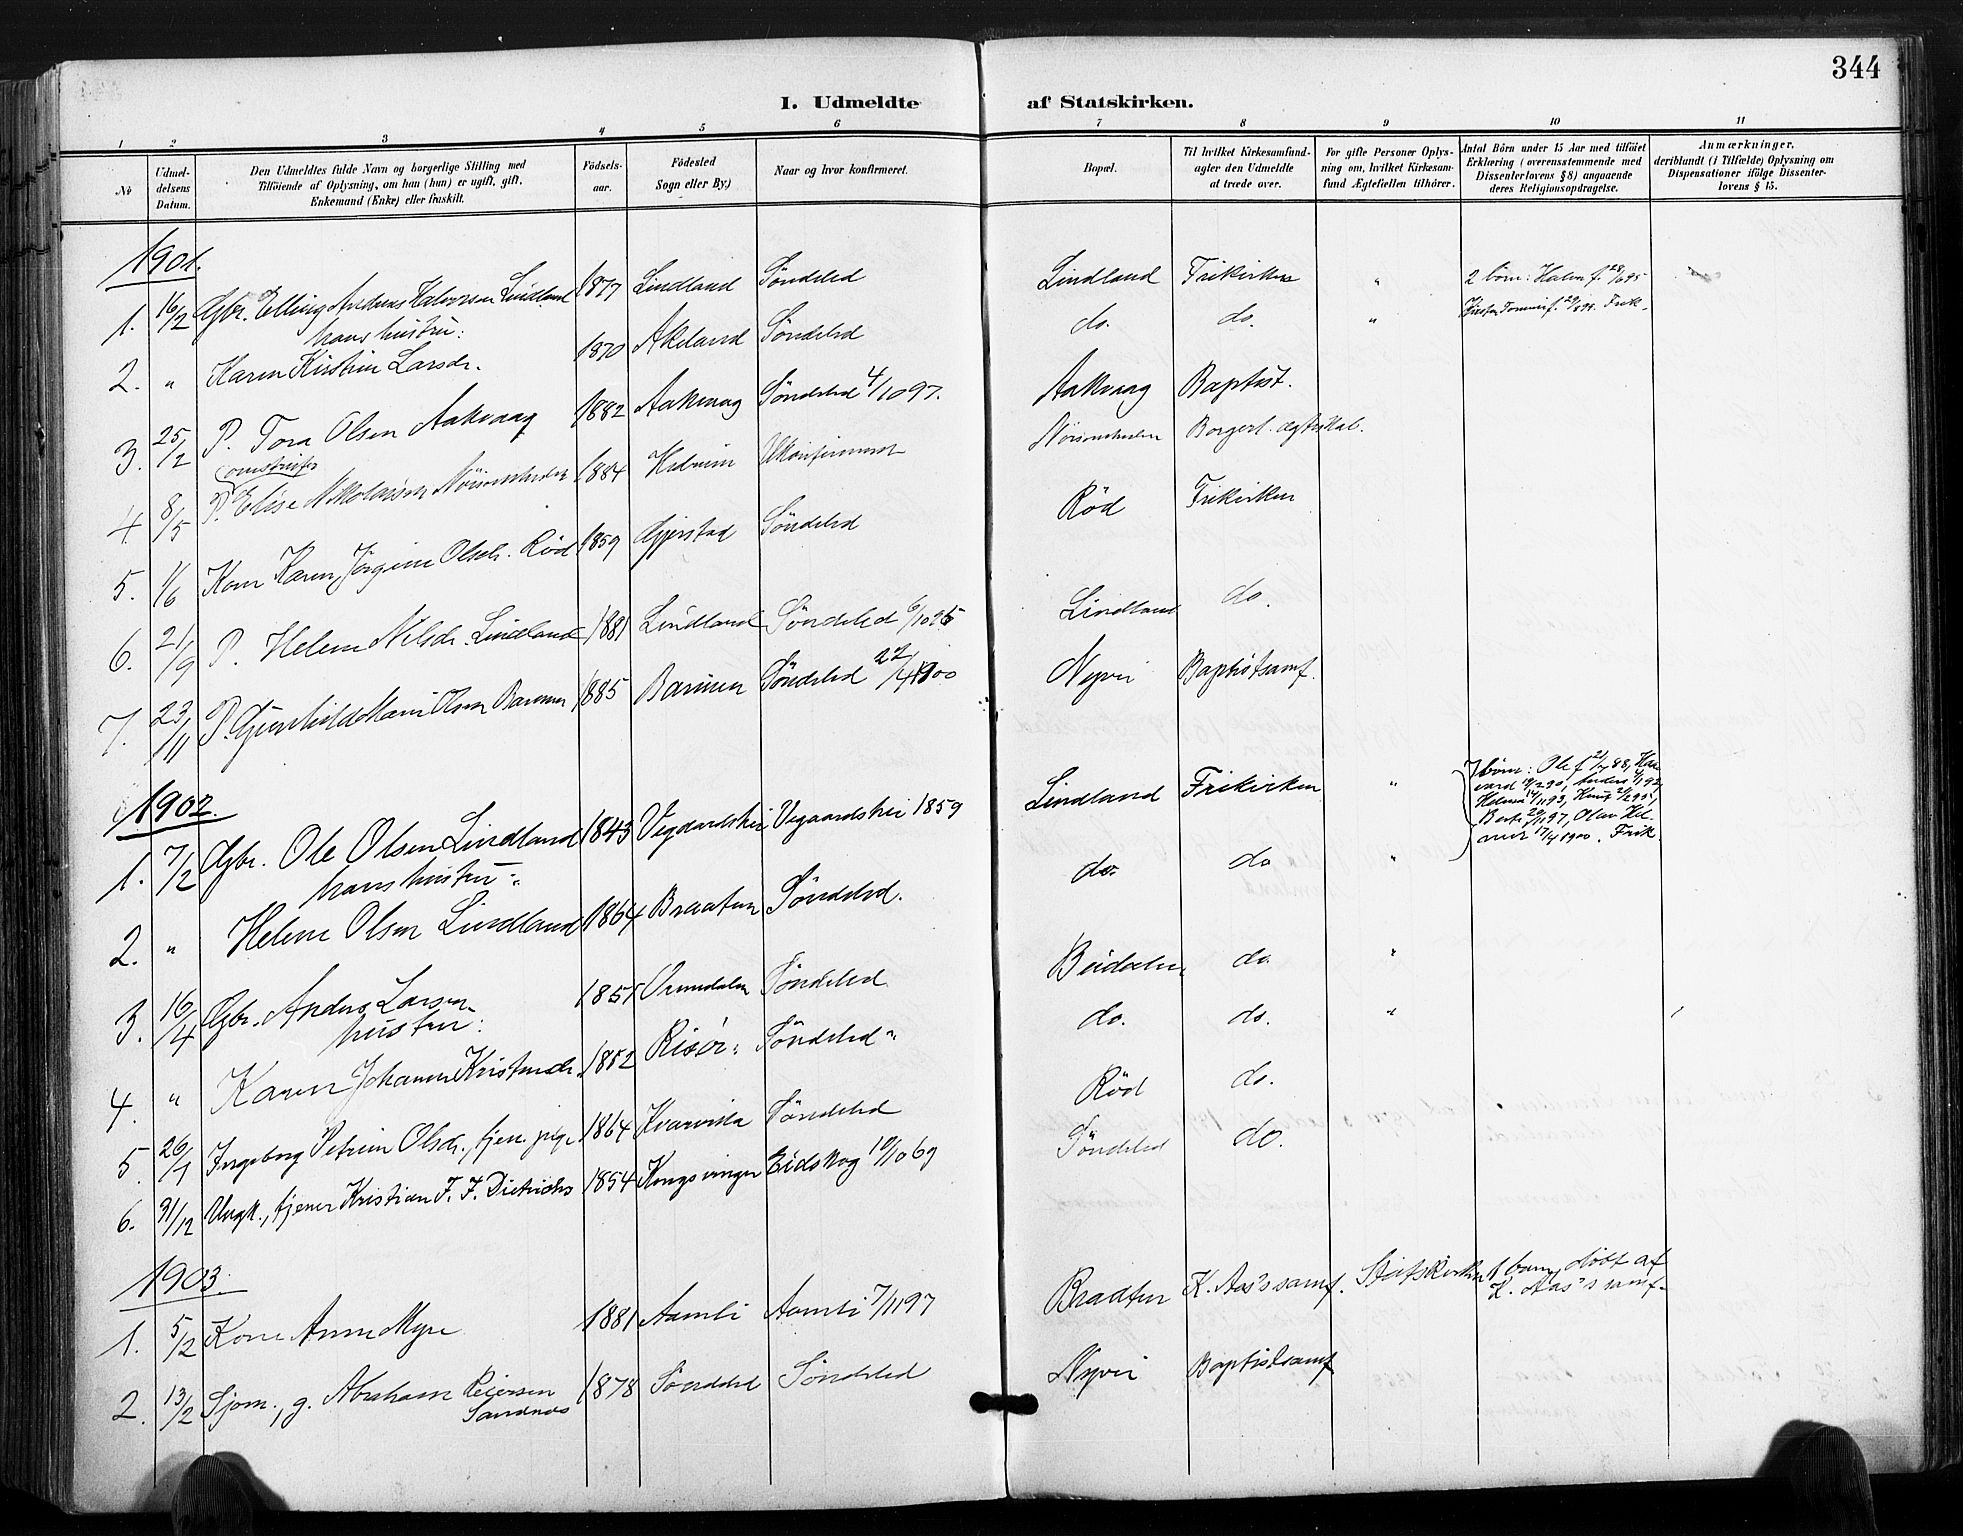 344
I. Udmeldte af Statskirken.
1 2 3 4 5 6 7 8 9 10 11
№
Udmel-
delsens
Datum.
Den Udmeldtes fulde Navn og borgerlige Stilling med
Tilføiende af Oplysning, om han (hun) er ugift, gift,
Enkemand (Enke) eller fraskilt.
Fødsels-
aar.
Fødested
Sogn eller By.)
Naar og hvor konfirmeret.
Bopæl.
Til hvilket Kirkesamfund-
agter den Udmeldte
at træde over.
For gifte Personer Oplys-
ning om, hvilket Kirkesam-
fund Ægtefællen tilhører.
Antal Børn under 15 Aar med tilføiet
Erklæring (overensstemmende med
Dissenterlovens § 8) angaaende
deres Religionsopdragelse.
Anmærkninger,
deriblandt (i Tilfælde) Oplysning om
Dispensationer ifølge Dissenter-
lovens § 15.
1901.
1. 16/2 Gbr. Elling Andreas Halvorsen Lindland 1877 Lindland Söndeled Lindland Frikirken " 2 börn: Halvor f. 28/6 95
hans hustru:
2. " Karen Kirstine Larsdr. 1870 Akeland Söndeled do. do. " f. 29/8 99. Frik.
3. 25/2 P. Tora Olsen Aakvaag 1882 Aakvaag Söndeled 4/10 97. Aakvaag Baptist.
4. 8/5 P. Elise Nikolaisen 1884 Ukonfirmeret Borgerl. ægteskab.
5. 1/6 Kone Karen Jörgine Olsdr. Röd 1859 Gjerstad Söndeled Röd Frikirken
6. 21/9 P. Helene Nilsdr. Lindland 1881 Lindland Söndeled 6/10 95 Lindland do.
7. 23/11 P. Gunhild Marie Olsen Barmen 1885 Barmen Söndeled 22/4 1900 Nyvei Baptistsamf.
1902.
1. 7/2 Gbr. Ole Olsen Lindland 1843 Vegaardshei Vegaardshei 1859 Lindland Frikirken " 7 börn: Ole f 21/7 88, Hav-
vard 19/2 90, Anders 4/1 92,
Helma 14/11 93, Knut 21/2 95,
Berta 20/11 97, Olav Hel-
mer 17/4 1900. Frik.
hans hustru:
2. " Helene Olsen Lindland 1864 Braaten Söndeled. do. do "
3. 16/4 Gbr. Anders Larsen 1851 Ormdalen Söndeled do. "
hustru:
4. " Karen Johanne Kristensdr. 1852 Risör. Söndeled do. do. "
5. 26/7 Ingeborg Petrine Olsdr., tjen. pige 1864 Kvarvika Söndeled Röd do.
6. 31/12 Ungk., tjener Kristian F. F. Dietrichs 1854 Kongsvinger Eidskog 10/10 69 Söndeled do.
1903.
1. 5/2 Kone Anne Myre 1881 Aamli Aamli 7/11 97 Braaten K. Aas's samf. Statskirken 1 barn, döbt af
K. Aas's samf.
2. 13/2 Sjöm., g. Abraham Reiersen
Sandnes 1878 Söndeled Söndeled Nyvei Baptistsamf